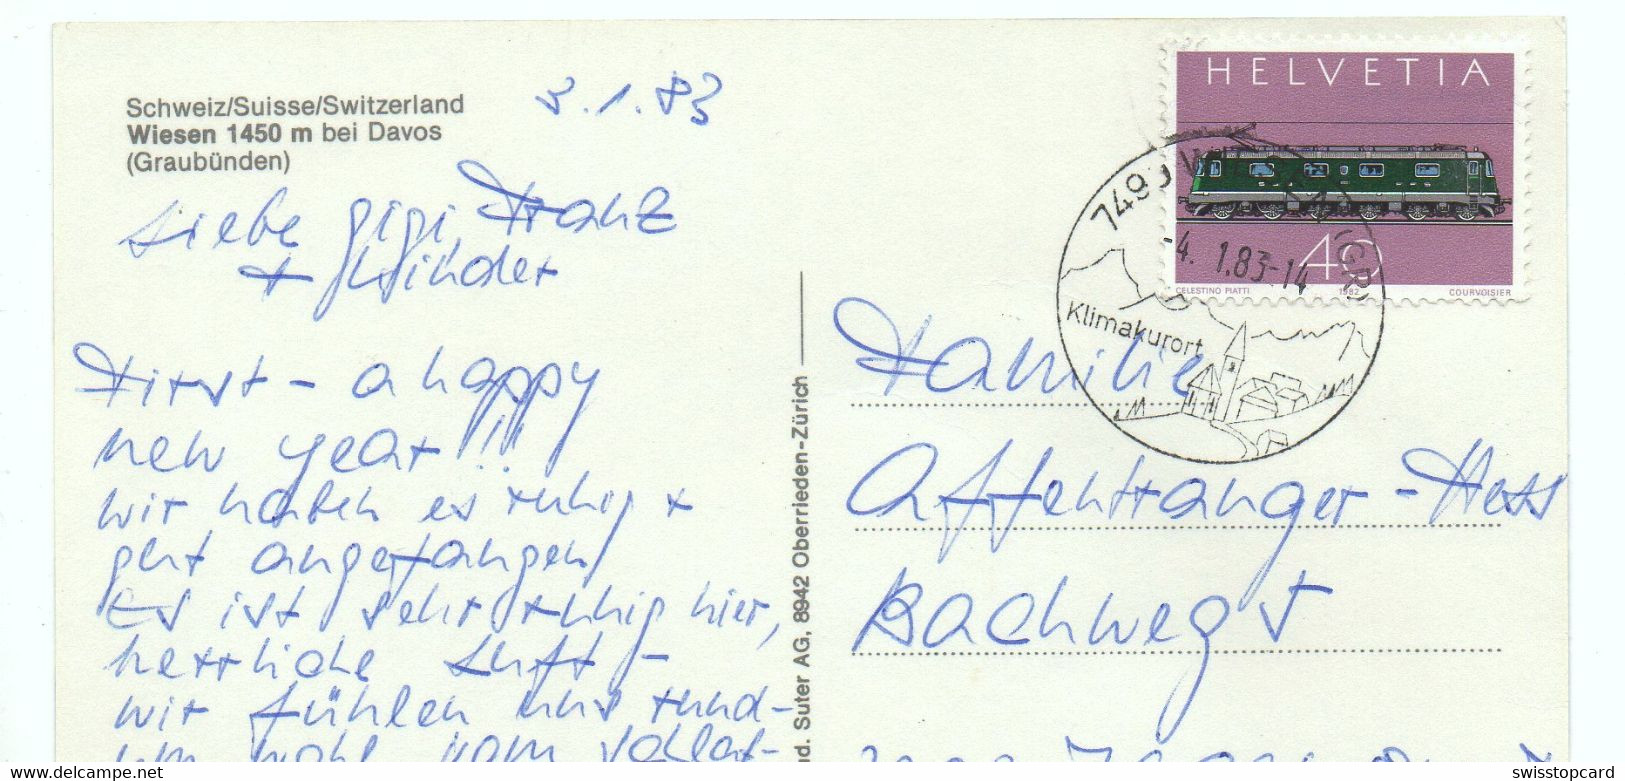 Schweiz/Suisse/Switzerland
Wiesen 1450 m bei Davos
(Graubünden)
3.1.83
Liebe Gigi, Franz
+ Kinder
First - a happy
new year!!!
wir haben es ruhig +
gut angefangen!
Es ist sehr ruhig hier,
herrliche Luft -
wir fühlen uns rund-
um wohl vom
nd. Suter AG, 8942 Oberrieden-Zürich
HELVETIA
40
CELESTINO PIATTI 1982 COURVOISIER
(GR)
-4. 1.83-14
Klimakurort
Familie
Affentranger - Hess
Bachweg 5
https://www.delcampe.net
swisstopcard